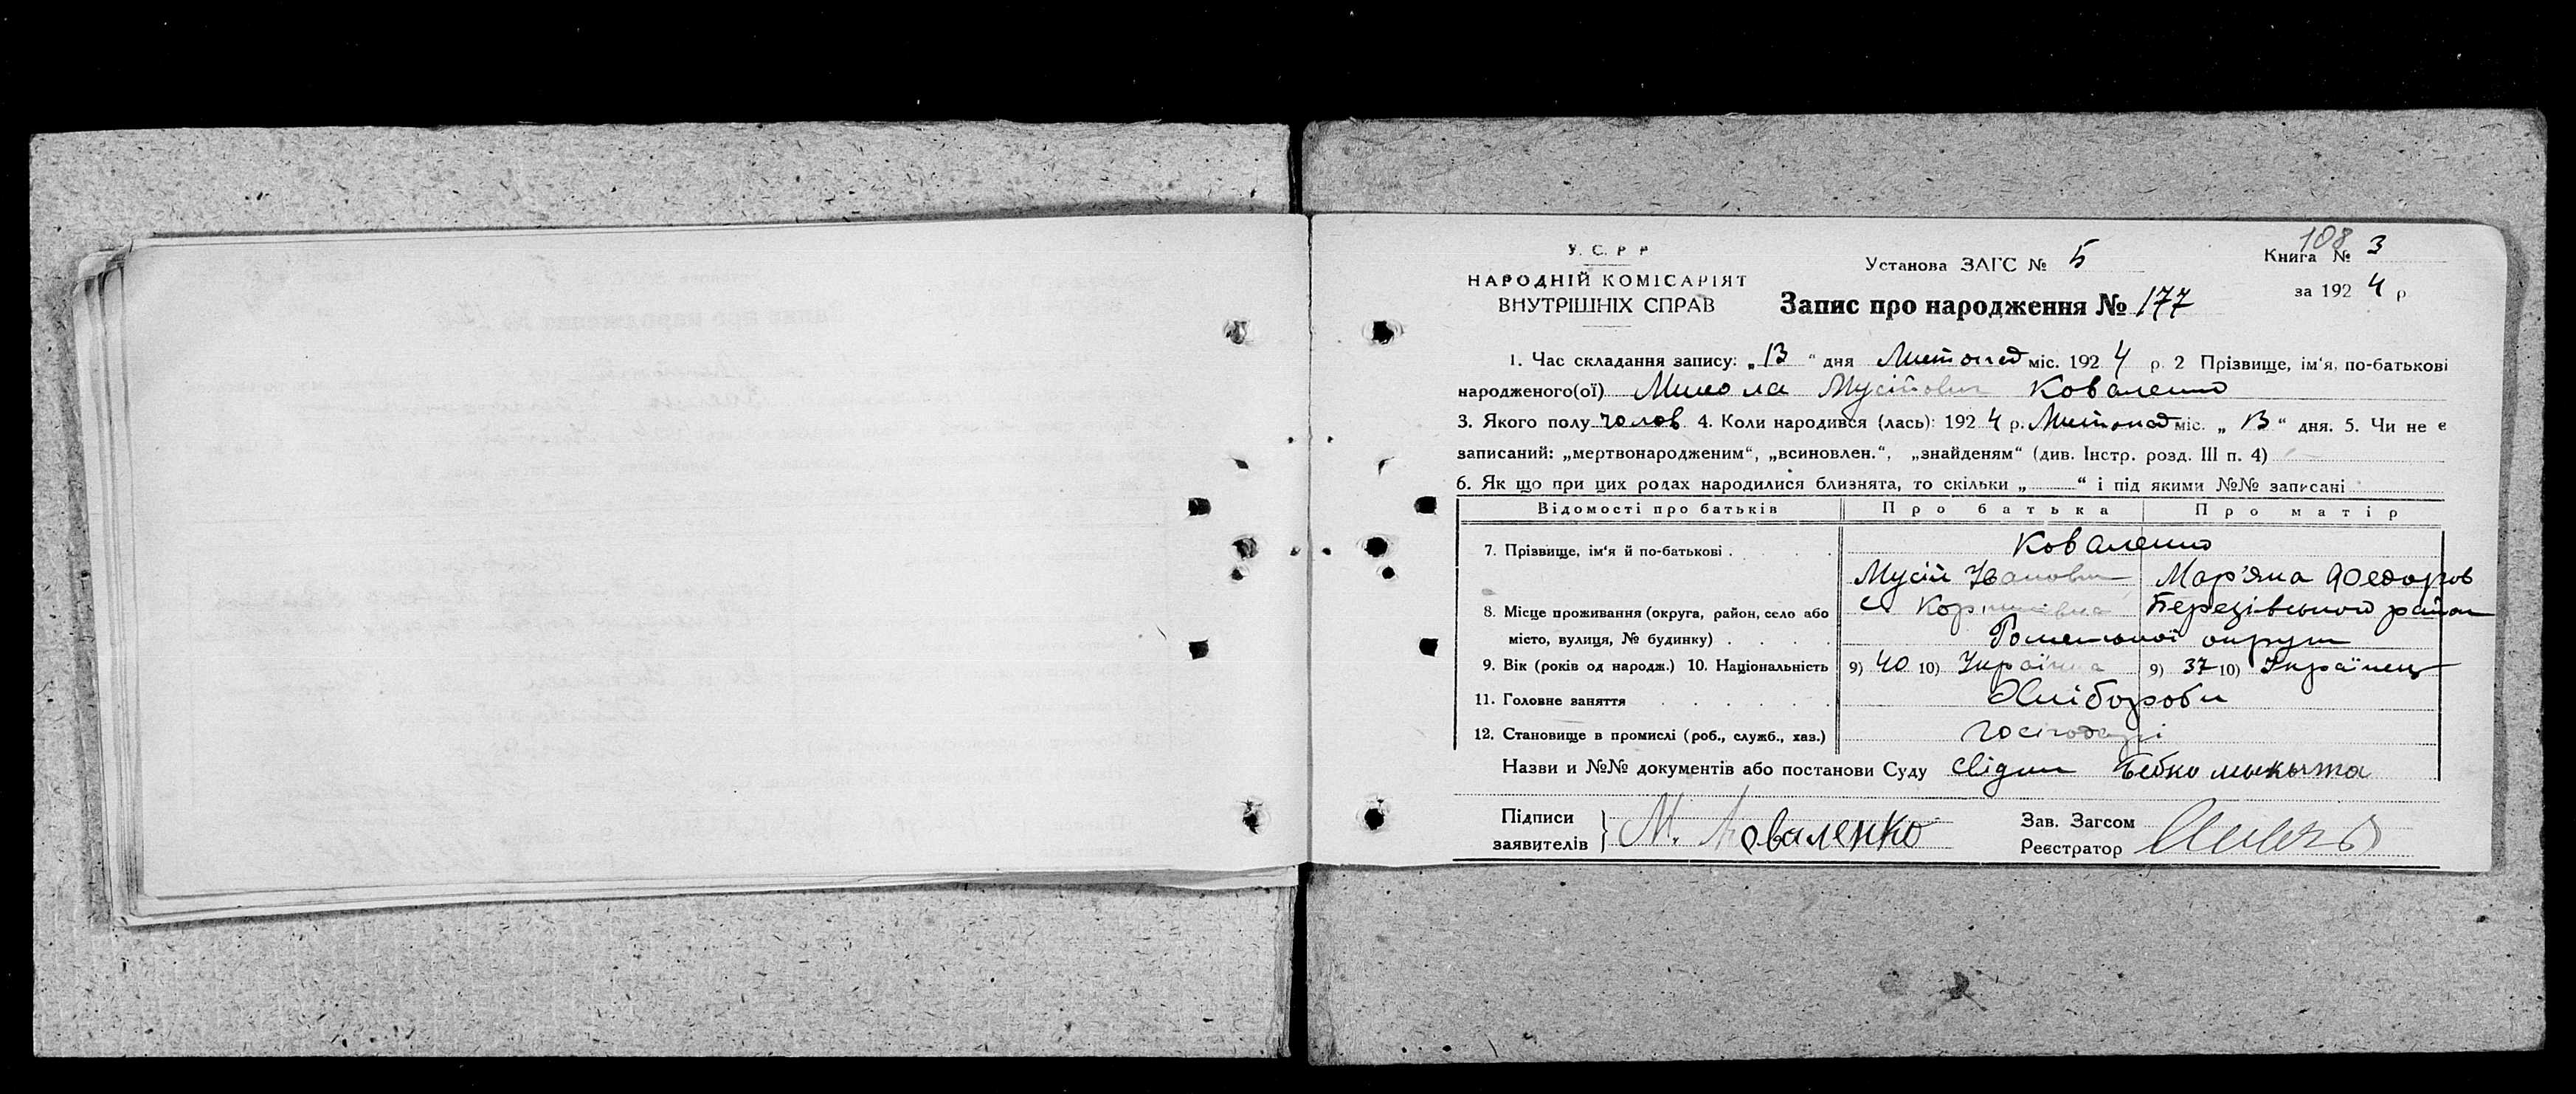 108
У. С. Р. Р.
НАРОДНІЙ КОМІСАРІЯТ
ВНУТРІШНІХ СПРАВ
Установа ЗАГС № 5
Книга № 3
за 192 4 р
Запис про народження № 177
1. Час складання запису: „ 13 “ дня Листопад міс. 192 4 р. 2 Прізвище, ім'я, по-батькові
народженого(ої) Микола Мусійович Коваленко
3. Якого полу чолов 4. Коли народився (лась): 192 4 р. Листопад міс. „ 13 “ дня. 5. Чи не є
записаний: „мертвонародженим“, „всиновлен.“, „знайденям“ (див. Інстр. розд. III п. 4)
6. Як що при цих родах народилися близнята, то скільки „ “ і під якими №№ записані
Відомості про батьків Про батька Про матір
7. Прізвище, ім'я й по-батькові . . . Коваленко
Мусій Іванович Мар'яна Федоров
8. Місце проживання (округа, район, село або с. Березівського район
місто, вулиця, № будинку) . . . . Роменської округи
9. Вік (років од народж.) 10. Національність 9) 40 10) Україн 9) 37 10) Українец
11. Головне заняття . . . . . . Хлібороби
12. Становище в промислі (роб., служб., хаз.) Господарі
Назви и №№ документів або постанови Суду Свідки Бебко Микыта
Підписи
заявителів М. Коваленко
Зав. Загсом
Реєстратор